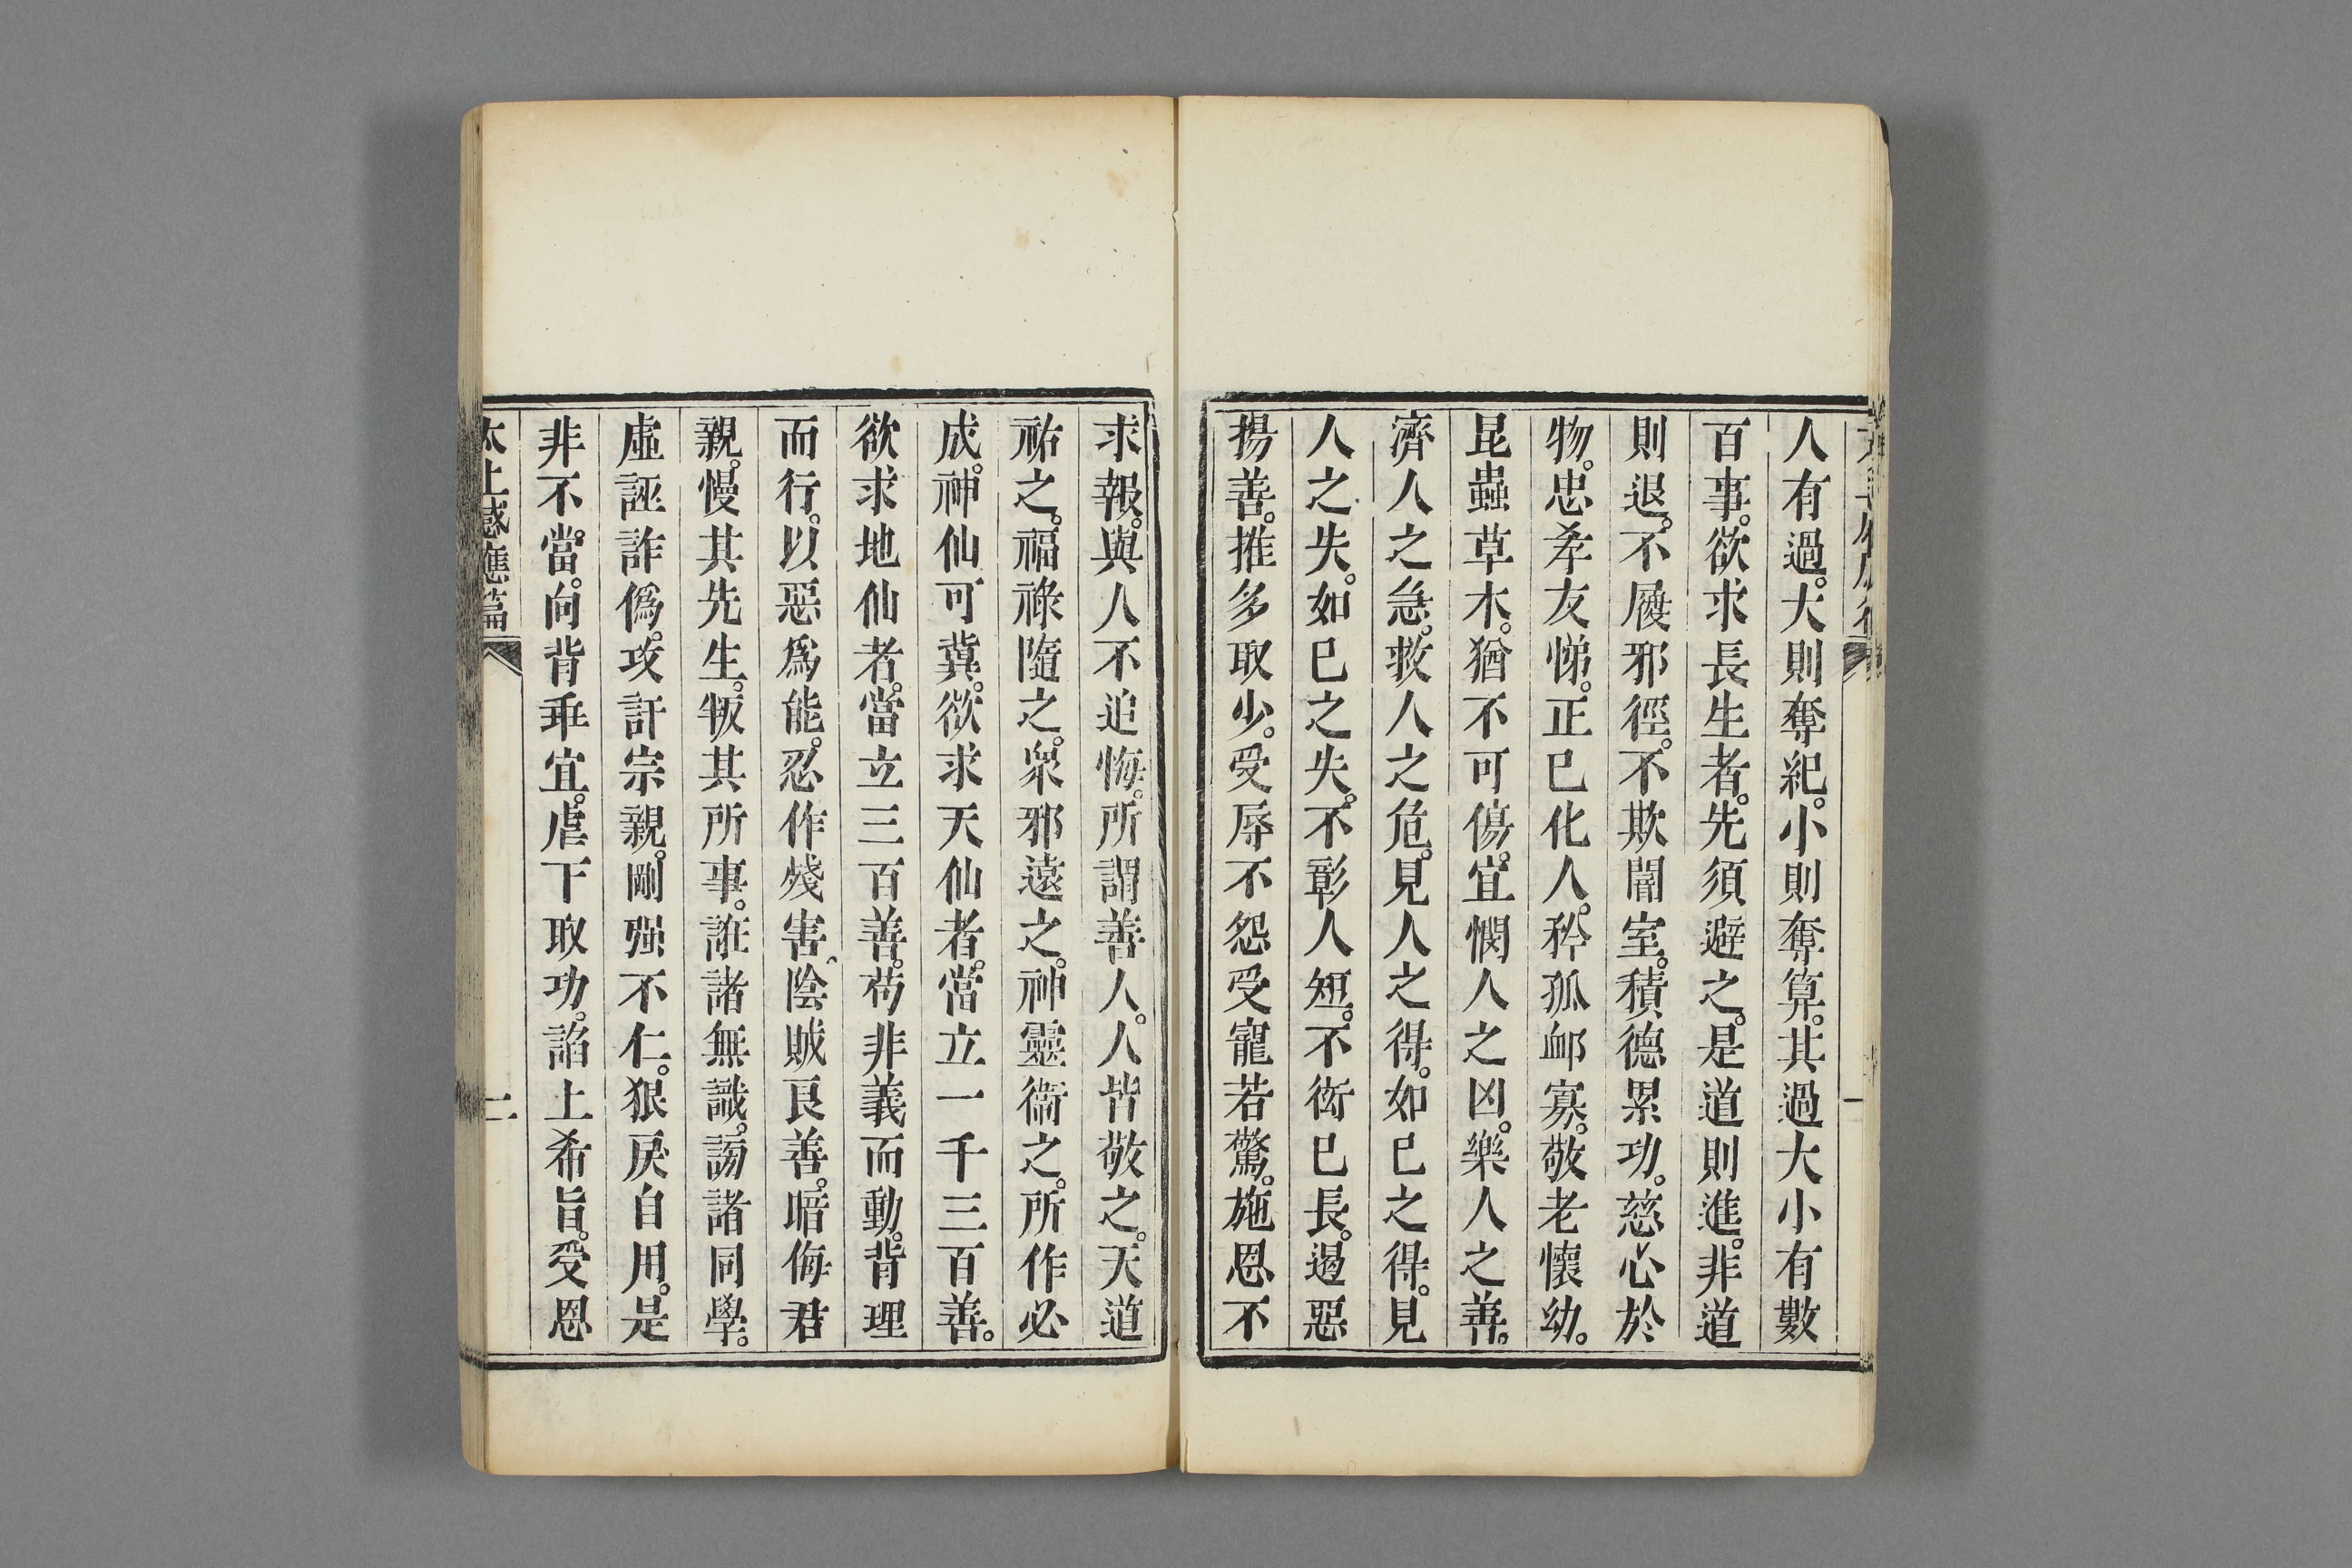 人有過。大則奪紀。小則奪算。其過大小有數
百事。欲求長生者。先須避之。是道則進。非道
則退。不履邪徑。不欺闇室。積德累功。慈心於
物。忠孝友悌。正已化人。矜孤卹寡。敬老懷幼。
昆蟲草木。猶不可傷。宜憫人之凶。樂人之善。
濟人之急。救人之危。見人之得。如已之得。見
人之失。如已之失。不彰人短。不衒已長。遏惡
揚善。推多取少。受辱不怨受寵若驚。施恩不
求報。與人不追悔。所謂善人。人皆敬之。天道
祐之。福祿隨之。衆邪遠之。神靈衞之。所作必
成。神仙可冀。欲求天仙者。當立一千三百善。
欲求地仙者。當立三百善。苟非義而動。背理
而行。以惡爲能。忍作殘害、陰賊良善。暗侮君
親。慢其先生。叛其所事。誑諸無識。謗諸同學。
虛誣詐僞。攻訐宗親。剛强不仁。狠戾自用。是
非不當。向背乖宜。虐下取功。諂上希旨。受恩
太上感應篇
二